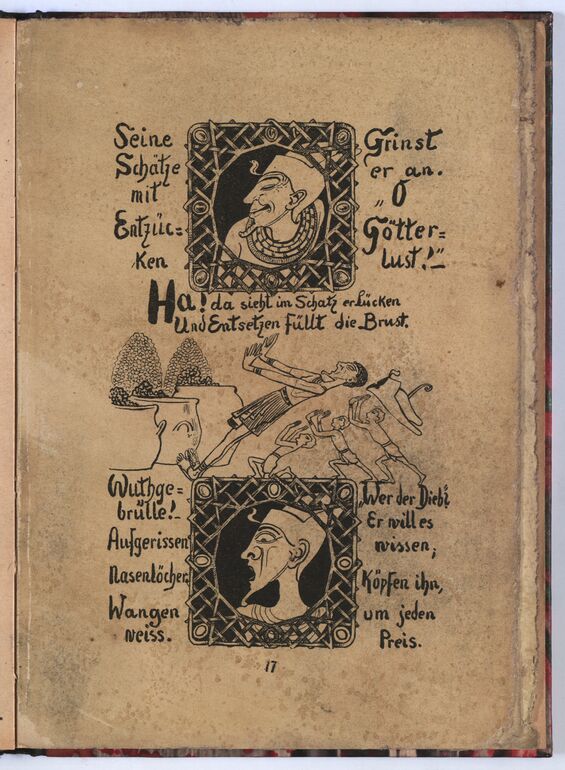 Seine
Schätze
mit
Entzüc-
ken
Grinst
er an.
„O
Götter-
lust!"
Ha! da sieht im Schatz er Lücken
Und Entsetzen füllt die Brust.
Wuthge-
brülle!-
Aufgerissen
Nasenlöcher,
Wangen
weiss.
„Wer der Dieb?"
Er will es
wissen;
Köpfen ihn,
um jeden
Preis.
17